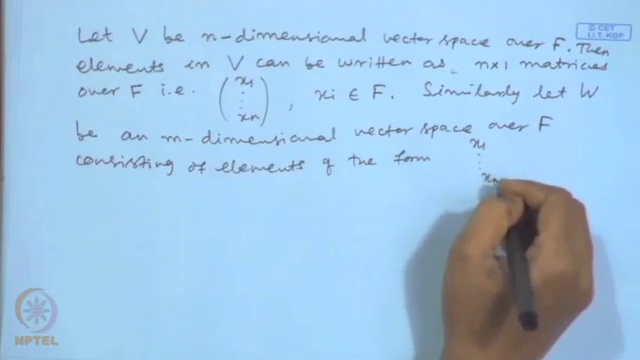 © CET
I.I.T. KGP
Let V be n-dimensional vector space over F. Then
elements in V can be written as, n×1 matrices
over F i.e. (x1 ⋮ xn), xi ∈ F. Similarly let W
be an m-dimensional vector space over F
consisting of elements of the form x1 ⋮
NPTEL